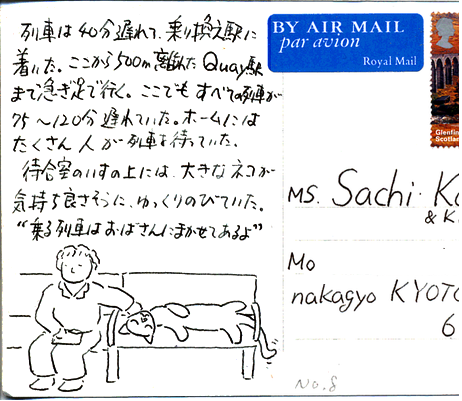 列車は40分遅れて、乗り換え駅に
着いた。ここから500m離れたQuay駅
まで急ぎ足で行く。ここでもすべての列車が
75〜120分遅れていた。ホームには
たくさん人が列車を待っていた。
待合室のいすの上には、大きなネコが
気持ち良さそうに、ゆっくりのびていた。
“乗る列車はおばさんにまかせてあるよ”
BY AIR MAIL
par avion
Royal Mail
Glenfin
Scotlan
MS. Sachi K
& K
Mo
nakagyo KYOTO
6
No. 8